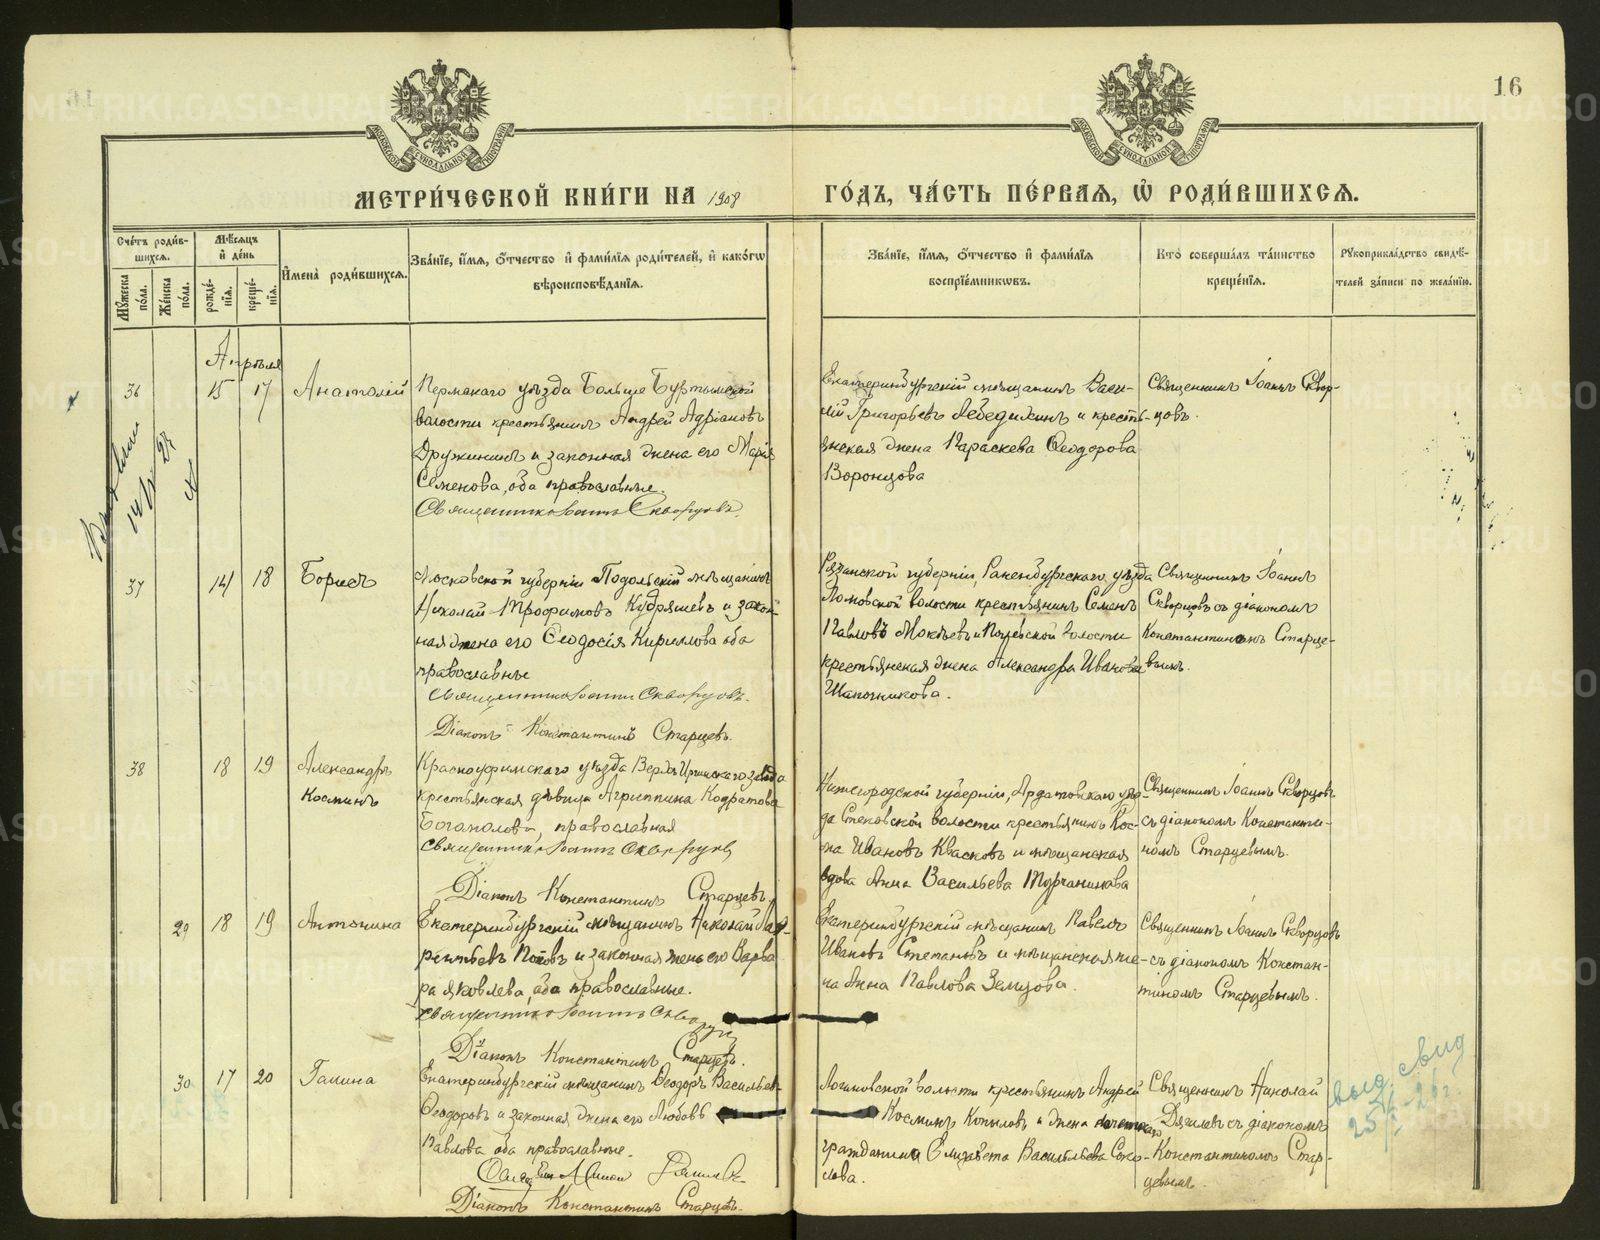 16
МЕТРИ́ЧЕСКОЙ КНИ́ГИ НА 1908 ГО́ДЪ, ЧА́СТЬ ПЕ́РВАЯ, Ѡ РОДИ́ВШИХСЯ.
Сче́тъ роди́в-
шихся.
Мѣ́сяцъ
и день
Мꙋ́жеска по́ла.
Же́нска по́ла.
рожде́-
нїя.
креще́-
нїя.
И́мена̀ роди́вшихся.
Зва́нїе, и́мя, о́тчество и фами́лїя роди́телей, и како́гѡ
вѣроисповѣ́данїя.
Зва́нїе, и́мя, о́тчество и фами́лїя
воспрїе́мникѡвъ.
Кто̀ соверша́лъ та́инство
креще́нїя.
Рꙋкоприкла́дство свидѣ́-
телей за́писи по жела́нїю.
Апрѣля
36 15 17 Анатолій
Пермскаго уѣзда Больше Буртымской
волости крестьянинъ Андрей Адріановъ
Дружининъ и законная жена его Марія
Семенова, оба православные.
Священникъ Іоаннъ Скворцовъ.
Екатеринбургскій мѣщанинъ Васи-
лій Григорьевъ Лебедихинъ и кресть-
янская жена Параскева Ѳеодорова
Воронцова
Священникъ Іоаннъ Сквор-
цовъ.
37 14 18 Борисъ
Московской губерніи Подольскій мѣщанинъ
Николай Трофимовъ Кудряшевъ и закон-
ная жена его Ѳеодосія Кириллова оба
православные
Священникъ Іоаннъ Скворцовъ.
Діаконъ Константинъ Старцевъ.
Рязанской губерніи, Раненбургскаго уѣзда
волости крестьянинъ Семенъ
Павловъ Мокѣевъ и волости
крестьянская жена Александра Иванова
Шапочникова.
Священникъ Іоаннъ
Скворцовъ съ діакономъ
Константиномъ Старце-
вымъ.
38 18 19 Александръ
Косминъ
Красноуфимскаго уѣзда Верхъ Иргинскаго завода
крестьянская дѣвица Агриппина Кодратова
Богаполова, православная
Священникъ Іоаннъ Скворцовъ
Діаконъ Константинъ Старцевъ.
Нижегородской губерніи, Ардатовскаго уѣз-
да волости крестьянинъ Кос-
ма Ивановъ Квасковъ и мѣщанская
вдова Анна Васильева Турчанинова
Священникъ Іоаннъ Скворцовъ
съ діакономъ Константи-
номъ Старцевымъ.
29 18 19 Антонина
Екатеринбургскій мѣщанинъ Николай Лав-
рентьевъ Поповъ и законная жена его Варва
ра Яковлева, оба православные.
Священникъ Іоаннъ Скворцовъ
Діаконъ Константинъ Старцевъ.
Екатеринбургскій мѣщанинъ Павелъ
Ивановъ Степановъ и мѣщанская же-
на Анна Павлова Земцова.
Священникъ Іоаннъ Скворцовъ
съ діакономъ Констан-
тиномъ Старцевымъ.
30 17 20 Галина
Екатеринбургскій мѣщанинъ Ѳеодоръ Васильевъ
Ѳеодоровъ и законная жена его Любовь
Павлова оба православные.
Діаконъ Константинъ Старцевъ.
волости крестьянинъ Андрей
Косминъ Копыловъ и жена
гражданина Елизавета Васильева Соко-
лова.
Священникъ Николай
съ діакономъ
Константиномъ Стар-
цевымъ.
выд. свид
METRIKI.GASO-URAL.RU